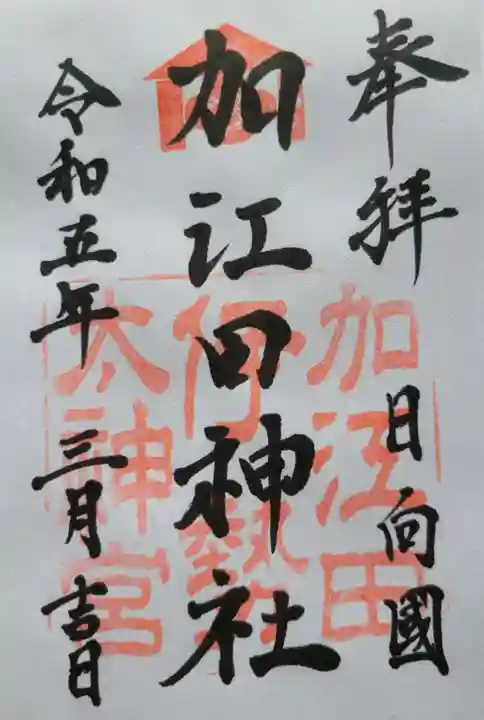 奉拝
日向國
加江田神社
令和五年 三月 吉日
加江田
伊勢
太神宮